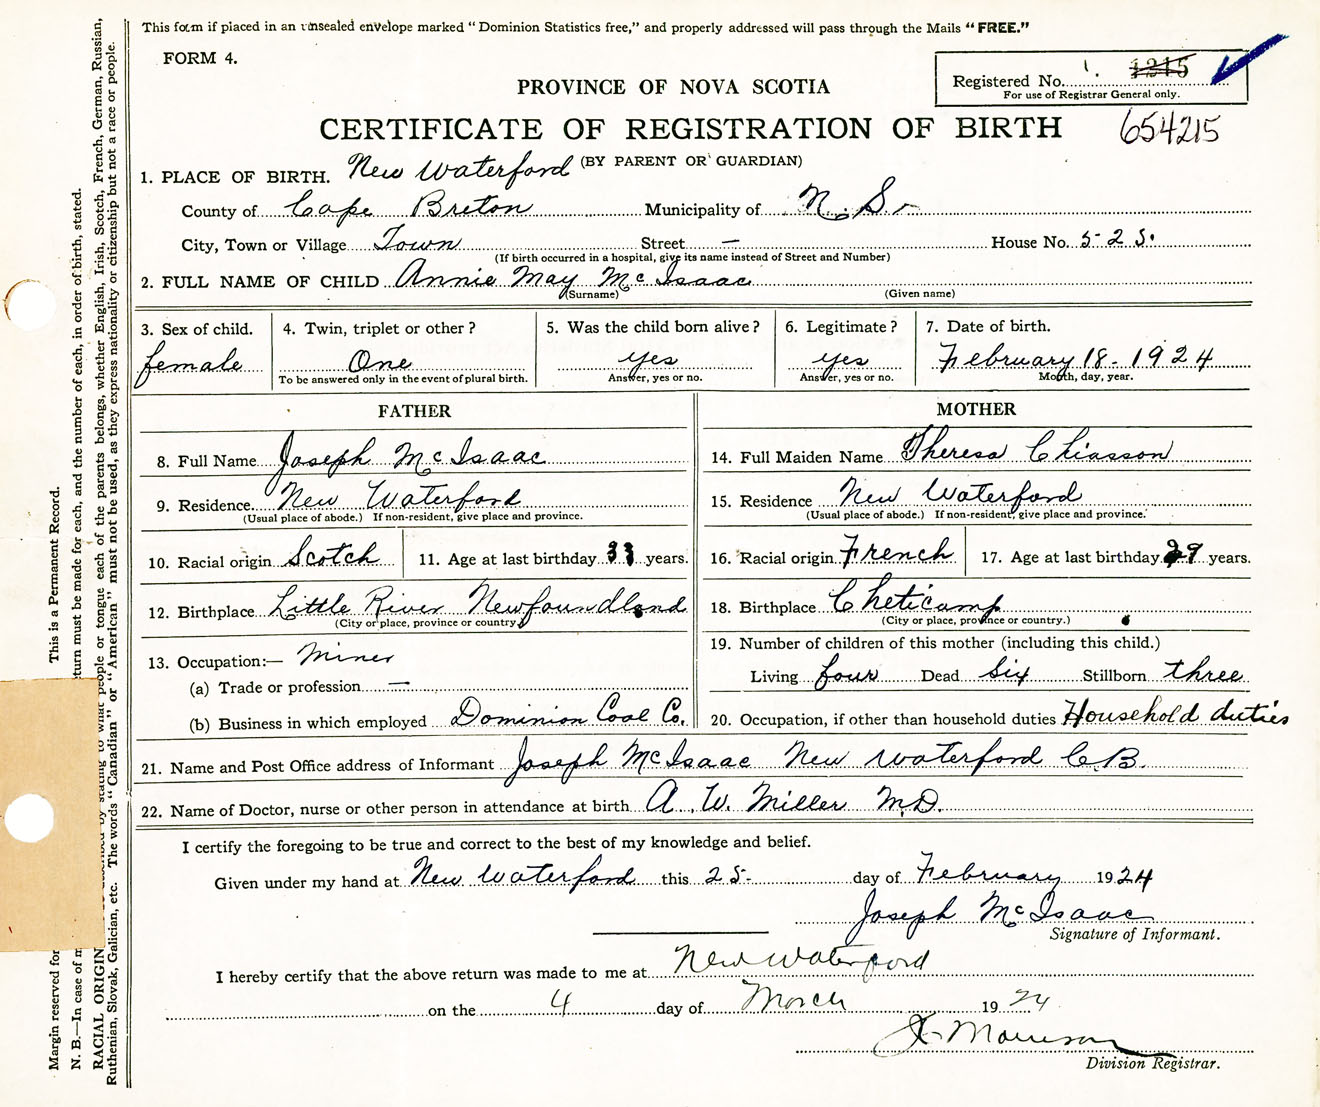 This form if placed in an unsealed envelope marked "Dominion Statistics free," and properly addressed will pass through the Mails "FREE."
FORM 4.
Registered No. 1215
For use of Registrar General only.
654215
PROVINCE OF NOVA SCOTIA
CERTIFICATE OF REGISTRATION OF BIRTH
(BY PARENT OR GUARDIAN)
1. PLACE OF BIRTH. New Waterford
County of Cape Breton Municipality of N. S.
City, Town or Village Town Street — House No. 525.
(If birth occurred in a hospital, give its name instead of Street and Number)
2. FULL NAME OF CHILD Annie May McIsaac
(Surname) (Given name)
3. Sex of child. 4. Twin, triplet or other? 5. Was the child born alive? 6. Legitimate? 7. Date of birth.
female One yes yes February 18-1924
To be answered only in the event of plural birth. Answer, yes or no. Answer, yes or no. Month, day, year.
FATHER
8. Full Name Joseph McIsaac
9. Residence. New Waterford
(Usual place of abode.) If non-resident, give place and province.
10. Racial origin Scotch 11. Age at last birthday 33 years.
12. Birthplace Little River Newfoundland
(City or place, province or country.)
13. Occupation:— Miner
(a) Trade or profession —
(b) Business in which employed Dominion Coal Co.
MOTHER
14. Full Maiden Name Theresa Chiasson
15. Residence New Waterford
(Usual place of abode.) If non-resident, give place and province.
16. Racial origin French 17. Age at last birthday 29 years.
18. Birthplace Cheticamp
(City or place, province or country.)
19. Number of children of this mother (including this child.)
Living four Dead six Stillborn three
20. Occupation, if other than household duties Household duties
21. Name and Post Office address of Informant Joseph McIsaac New Waterford C.B.
22. Name of Doctor, nurse or other person in attendance at birth A. W. Miller M.D.
I certify the foregoing to be true and correct to the best of my knowledge and belief.
Given under my hand at New Waterford this 25- day of February 1924
Joseph McIsaac
Signature of Informant.
I hereby certify that the above return was made to me at New Waterford
on the 4 day of March 1924
Morrison
Division Registrar.
Margin reserved for This is a Permanent Record.
N. B.—In case of m turn must be made for each, and the number of each, in order of birth, stated.
RACIAL ORIGIN stating to what people or tongue each of the parents belongs, whether English, Irish, Scotch, French, German, Russian,
Ruthenian, Slovak, Galician, etc. The words "Canadian" or "American" must not be used, as they express nationality or citizenship but not a race or people.